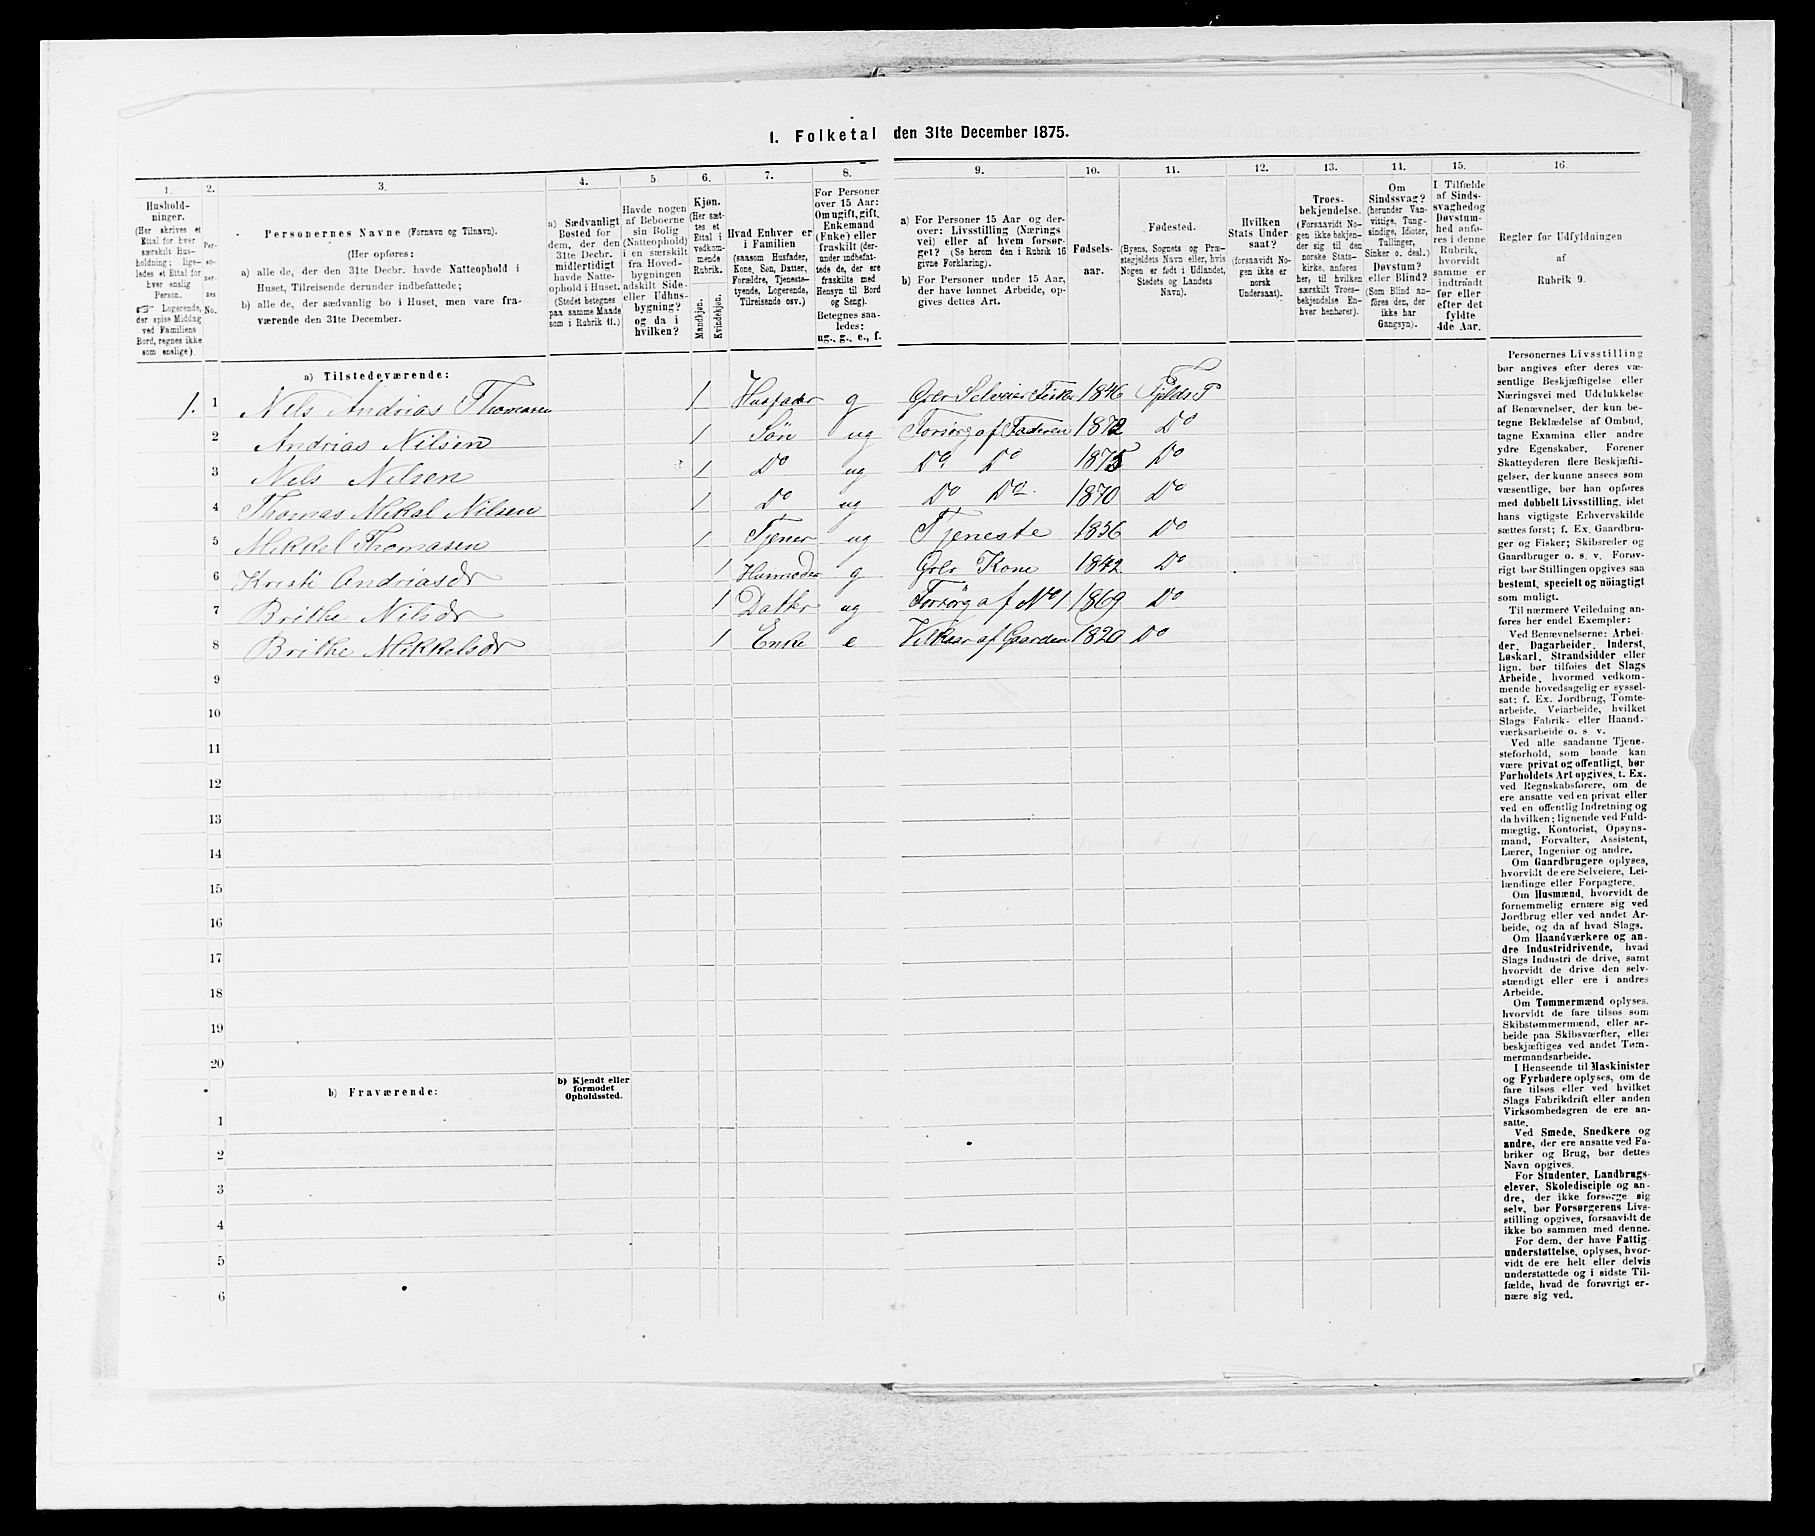 1. Folketal den 31te December 1875.
1. 2. 3. 4. 5. 6. 7. 8. 9. 10. 11. 12. 13. 14. 15. 16.
Hushold-
ninger.
(Her skrives et
Ettal for hver
særskilt Hus-
holdning; lige-
ledes et Ettal for
hver enslig
Person.
☞ Logerende,
der spise Middag
ved Familiens
Bord, regnes ikke
som enslige).
Per-
so-
ner-
nes
No.
Personernes Navne (Fornavn og Tilnavn).
(Her opføres:
a) alle de, der den 31te Decbr. havde Natteophold i
Huset, Tilreisende derunder indbefattede;
b) alle de, der sædvanlig bo i Huset, men vare fra-
værende den 31te December.
a) Sædvanligt
Bosted for
dem, der den
31te Decbr.
midlertidigt
havde Natte-
ophold i Huset.
(Stedet betegnes
paa samme Maade
som i Rubrik 11.)
Havde nogen
af Beboerne
sin Bolig
(Natteophold)
i en særskilt
fra Hoved-
bygningen
adskilt Side-
eller Udhus-
bygning?
og da i
hvilken?
Kjøn.
(Her sæt-
tes et
Ettal i
vedkom-
mende
Rubrik.
Mandkjøn.
Kvindekjøn.
Hvad Enhver er
i Familien
(saasom Husfader,
Kone, Søn, Datter,
Forældre, Tjeneste-
tyende, Logerende,
Tilreisende osv.)
For Personer
over 15 Aar:
Om ugift, gift,
Enkemand
(Enke) eller
fraskilt (der-
under indbefat-
tede de, der ere
fraskilte med
Hensyn til Bord
og Seng).
Betegnes saa-
ledes:
ug., g., e., f.
a) For Personer 15 Aar og der-
over: Livsstilling (Nærings-
vei) eller af hvem forsør-
get? (Se herom den i Rubrik 16
givne Forklaring).
b) For Personer under 15 Aar,
der have lønnet Arbeide, op-
gives dettes Art.
Fødsels-
aar.
Fødested.
(Byens, Sognets og Præ-
stegjeldets Navn eller, hvis
Nogen er født i Udlandet,
Stedets og Landets
Navn).
Hvilken
Stats Under-
saat?
(foraavidt No-
gen ikke er
norsk
Undersaat).
Troes-
bekjendelse.
(Forsaavidt No-
gen ikke bekjen-
der sig til den
norske Stats-
kirke, anføres
her, til hvilken
særskilt Troes-
bekjendelse En-
hver henhører).
Om
Sindssvag?
(herunder Van-
vittige, Tung-
sindige, Idioter,
Tullinger,
Sinker o. desl.)
Døvstum?
eller Blind?
(Som Blind an-
føres den, der
ikke har
Gangsyn).
I Tilfælde
af Sinds-
svaghed og
Døvstum-
hed anfø-
res i denne
Rubrik,
hvorvidt
samme er
indtraadt
før eller
efter det
fyldte
4de Aar.
Regler for Udfyldningen
af
Rubrik 9.
a) Tilstedeværende:
1. 1 Nels Andrias Thomasen 1 Husfader g Grbr Selveier Fisker 1846
2 Andrias Nilsen 1 Søn ug Forsørg af Faderen 1872 Do
3 Nels Nilsen 1 Do ug Do Do 1875 Do
4 Thomas Mikal Nilsen 1 Do ug Do Do 1870 Do
5 Mikkel Thomasen 1 Tjener ug Tjeneste 1836 Do
6 Kristi Andriasdr 1 Husmoder g Grbr Kone 1842 Do
7 Brithe Nilsdr 1 Datter ug Forsørg af No 1 1869 Do
8 Brithe Mikkelsdr 1 Enke e Vilkaar af Gaarden 1820 Do
9
10
11
12
13
14
15
16
17
18
19
20
b) Fraværende:
b) Kjendt eller
formodet
Opholdssted.
1
2
3
4
5
6
Personernes Livsstilling
bør angives efter deres væ-
sentlige Beskjæftigelse eller
Næringsvei med Udelukkelse
af Benævnelser, der kun be-
tegne Beklædelse af Ombud,
tagne Examina eller andre
ydre Egenskaber. Forener
Skatteyderen flere Beskjæfti-
gelser, der kunne ansees som
væsentlige, bør han opføres
med dobbelt Livsstilling, idet
hans vigtigste Erhvervskilde
sættes først; f. Ex. Gaardbru-
ger og Fisker; Skibsreder og
Gaardbruger o. s. v. Forøv-
rigt bør Stillingen opgives saa
bestemt, specielt og nøiagtigt
som muligt.
Til nærmere Veiledning an-
føres her endel Exempler:
Ved Benævnelserne: Arbei-
der, Dagarbeider, Inderst,
Løskarl, Strandsidder eller
lign. bør tilføies det Slags
Arbeide, hvormed vedkom-
mende hovedsagelig er syssel-
sat; f. Ex. Jordbrug, Tomte-
arbeide, Veiarbeide, hvilket
Slags Fabrik- eller Haand-
værksarbeide o. s. v.
Ved alle saadanne Tjene-
steforhold, som baade kan
være privat og offentligt, bør
Forholdets Art opgives, t. Ex.
ved Regnskabsførere, om de
ere ansatte ved en privat eller
ved en offentlig Indretning og
da hvilken; lignende ved Fuld-
mægtig, Kontorist, Opsyns-
mand, Forvalter, Assistent,
Lærer, Ingeniør og andre.
Om Gaardbrugere oplyses,
hvorvidt de ere Selveiere, Lei-
lændinge eller Forpagtere.
Om Husmænd, hvorvidt de
fornemmelig ernære sig ved
Jordbrug eller ved andet Ar-
beide, og da af hvad Slags.
Om Haandværkere og an-
dre Industridrivende, hvad
Slags Industri de drive, samt
hvorvidt de drive den selv-
stændigt eller ere i andres
Arbeide.
Om Tømmermænd oplyses,
hvorvidt de fare tilsøs som
Skibstømmermænd, eller ar-
beide paa Skibsværfter, eller
beskjæftiges ved andet Tøm-
mermandsarbeide.
I Henseende til Maskinister
og Fyrbødere oplyses, om de
fare tilsøs eller ved hvilket
Slags Fabrikdrift eller anden
Virksomhedsgren de ere an-
satte.
Ved Smede, Snedkere og
andre, der ere ansatte ved Fa-
briker og Brug, bør dettes
Navn opgives.
For Studenter, Landbrugs-
elever, Skoledisciple og an-
dre, der ikke forsørge sig
selv, bør Forsørgerens Livs-
stilling opgives, forsaavidt de
ikke bo sammen med denne.
For dem, der have Fattig-
understøttelse, oplyses, hvor-
vidt de ere helt eller delvis
understøttede og i sidste Til-
fælde, hvad de forøvrigt er-
nære sig ved.